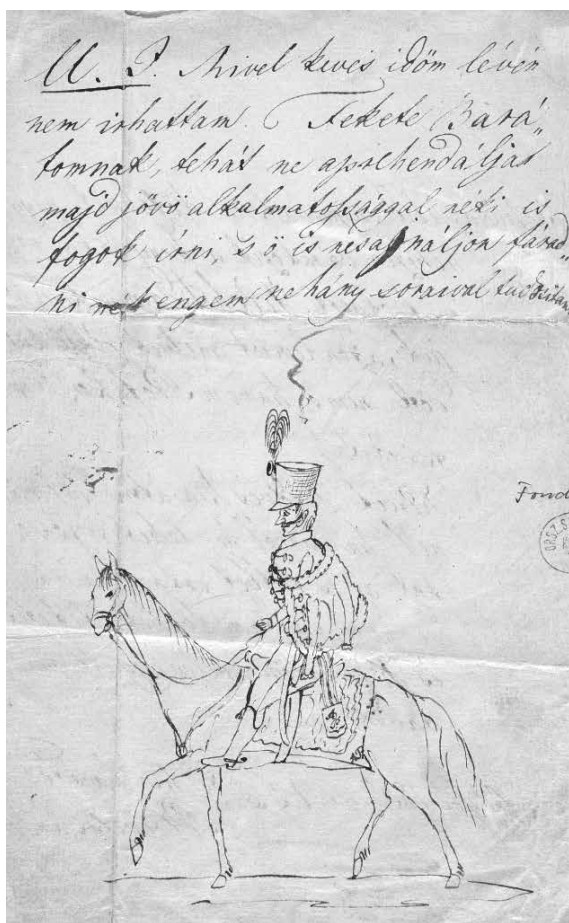 U. I. Mivel kevés időm lévén
nem irhattam Fekete Bará„
tomnak, tehát ne aprehendáljás
majd jövö alkalmatossággal néki is
fogok írni, s ö is nesajnáljon fárad„
ni engem nehány soraival tudositani
Fond
ORSZ. S